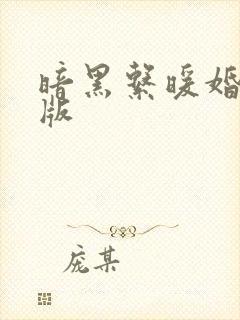 暗黑系暖婚
版
庞某